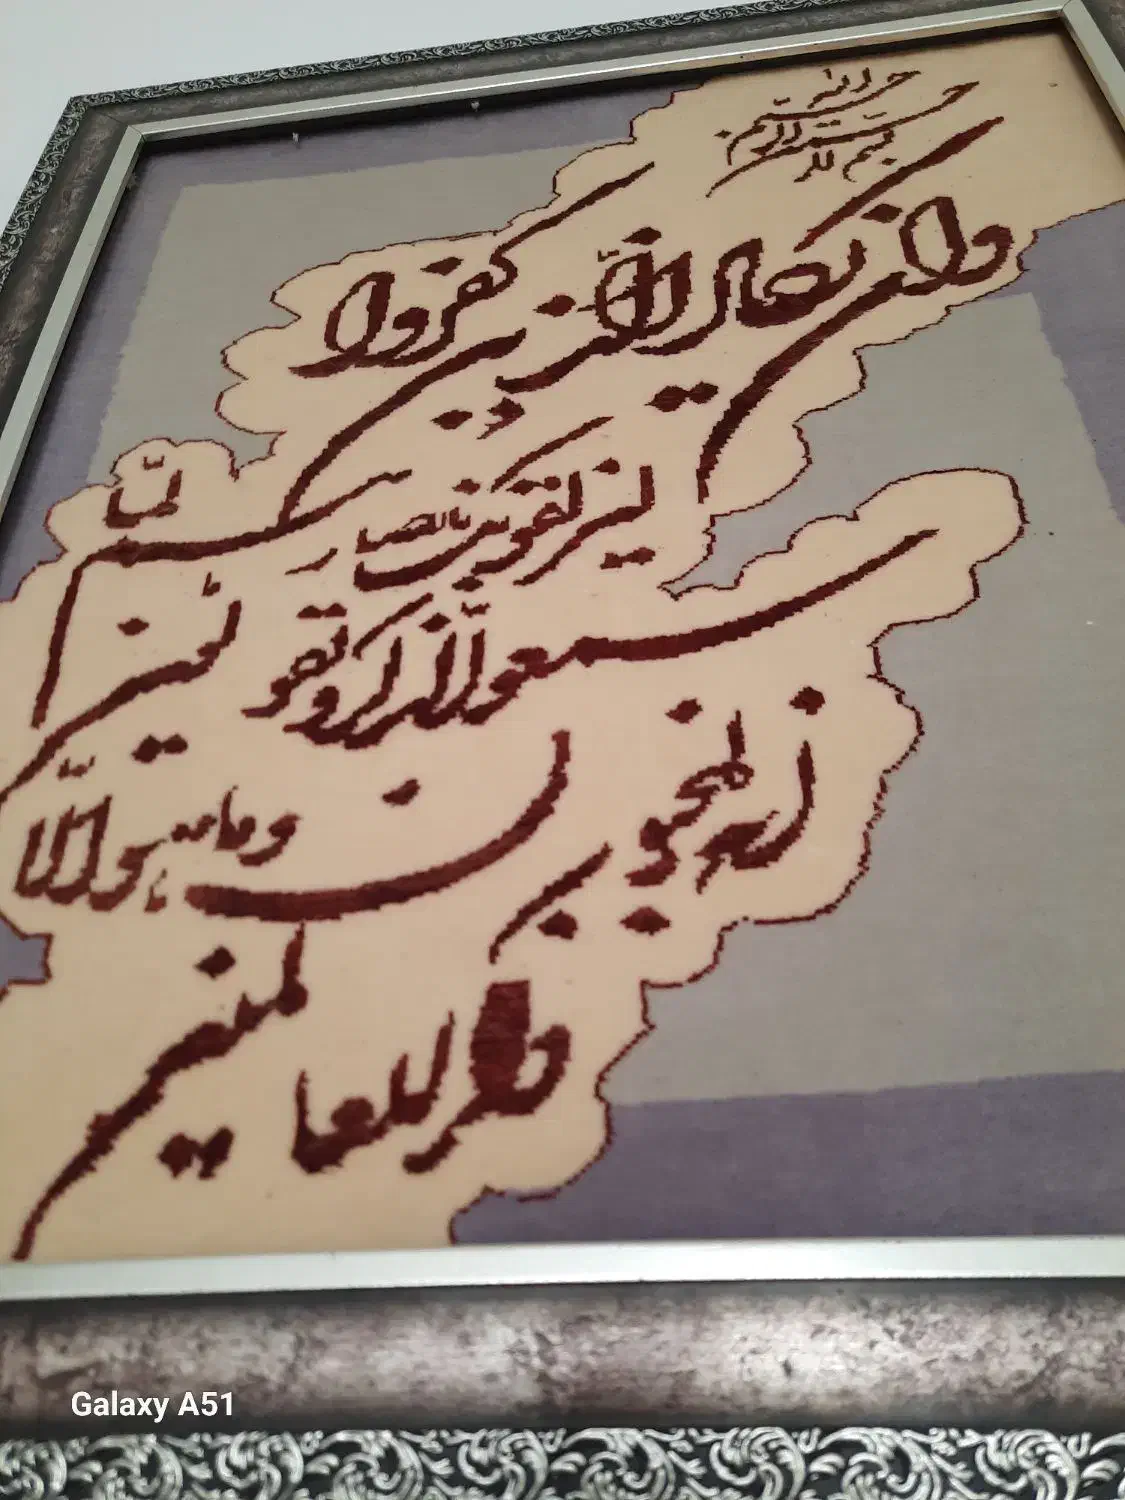 بسم الله
الرحمن الرحیم
وان یکاد الذین کفروا
لیزلقونک بابصارهم لما
سمعوا الذکر و یقولون
انه لمجنون و ما هو الا
ذکر للعالمین
Galaxy A51